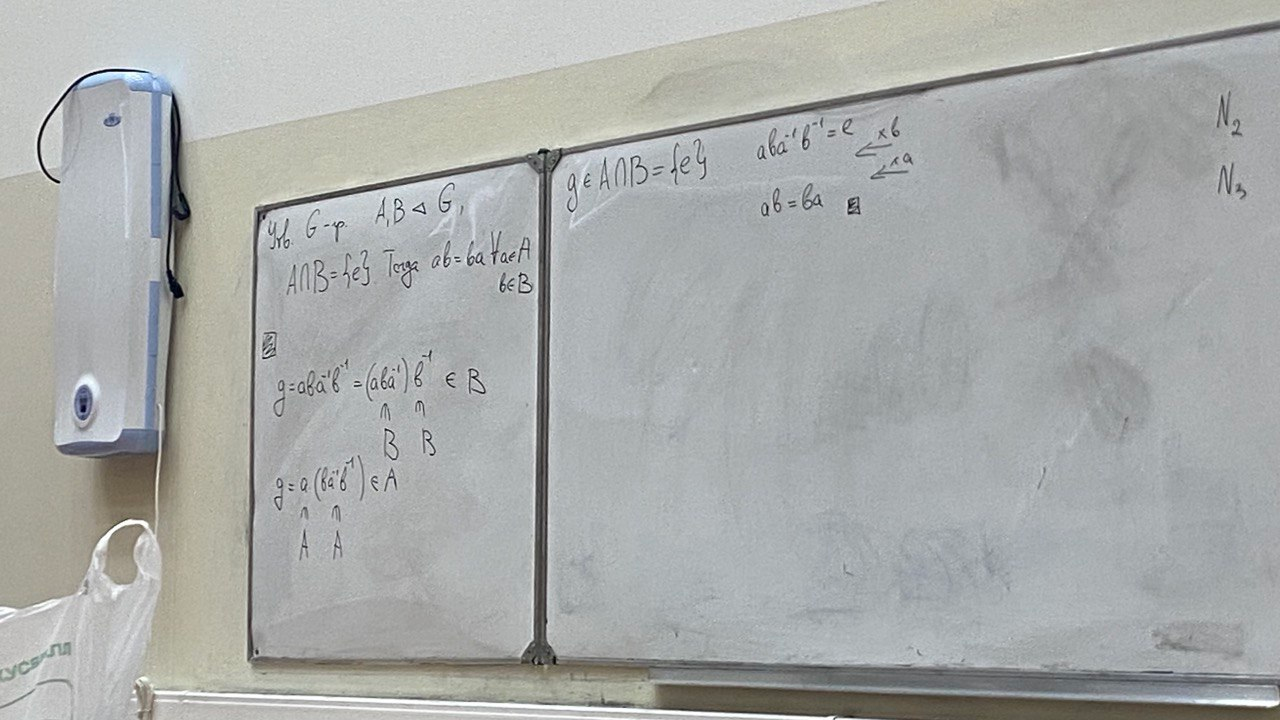 Утв. G-гр. A, B ◁ G,
A∩B={e} Тогда ab=ba ∀a∈A
b∈B
g=aba⁻¹b⁻¹=(aba⁻¹)b⁻¹ ∈ B
∩ ∩
B B
g=a(ba⁻¹b⁻¹)∈A
∩ ∩
A A
g∈A∩B={e}
aba⁻¹b⁻¹=e ×b
×a
ab=ba
N₂
N₃